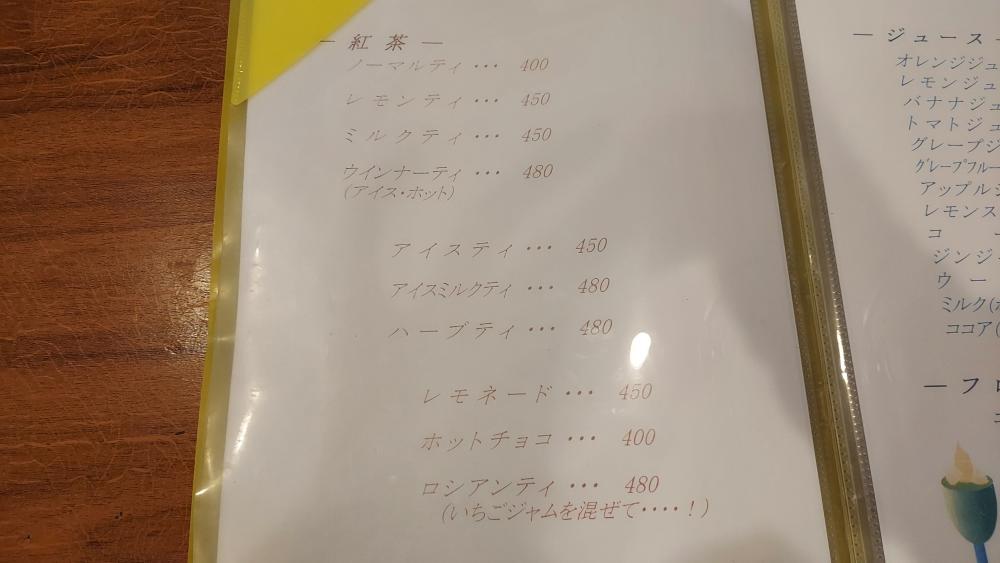 ― 紅 茶 ―
ノーマルティ ・・・ 400
レモンティ ・・・ 450
ミルクティ ・・・ 450
ウインナーティ ・・・ 480
(アイス・ホット)
アイスティ ・・・ 450
アイスミルクティ ・・・ 480
ハーブティ ・・・ 480
レモネード ・・・ 450
ホットチョコ ・・・ 400
ロシアンティ ・・・ 480
(いちごジャムを混ぜて・・・・！)
― ジュース ―
オレンジジュ
レモンジュ
バナナジュ
トマトジュ
グレープジ
グレープフルー
アップルジ
レモンス
コ ー
ジンジ
ウ ー
ミルク(ホ
ココア(
― フロ